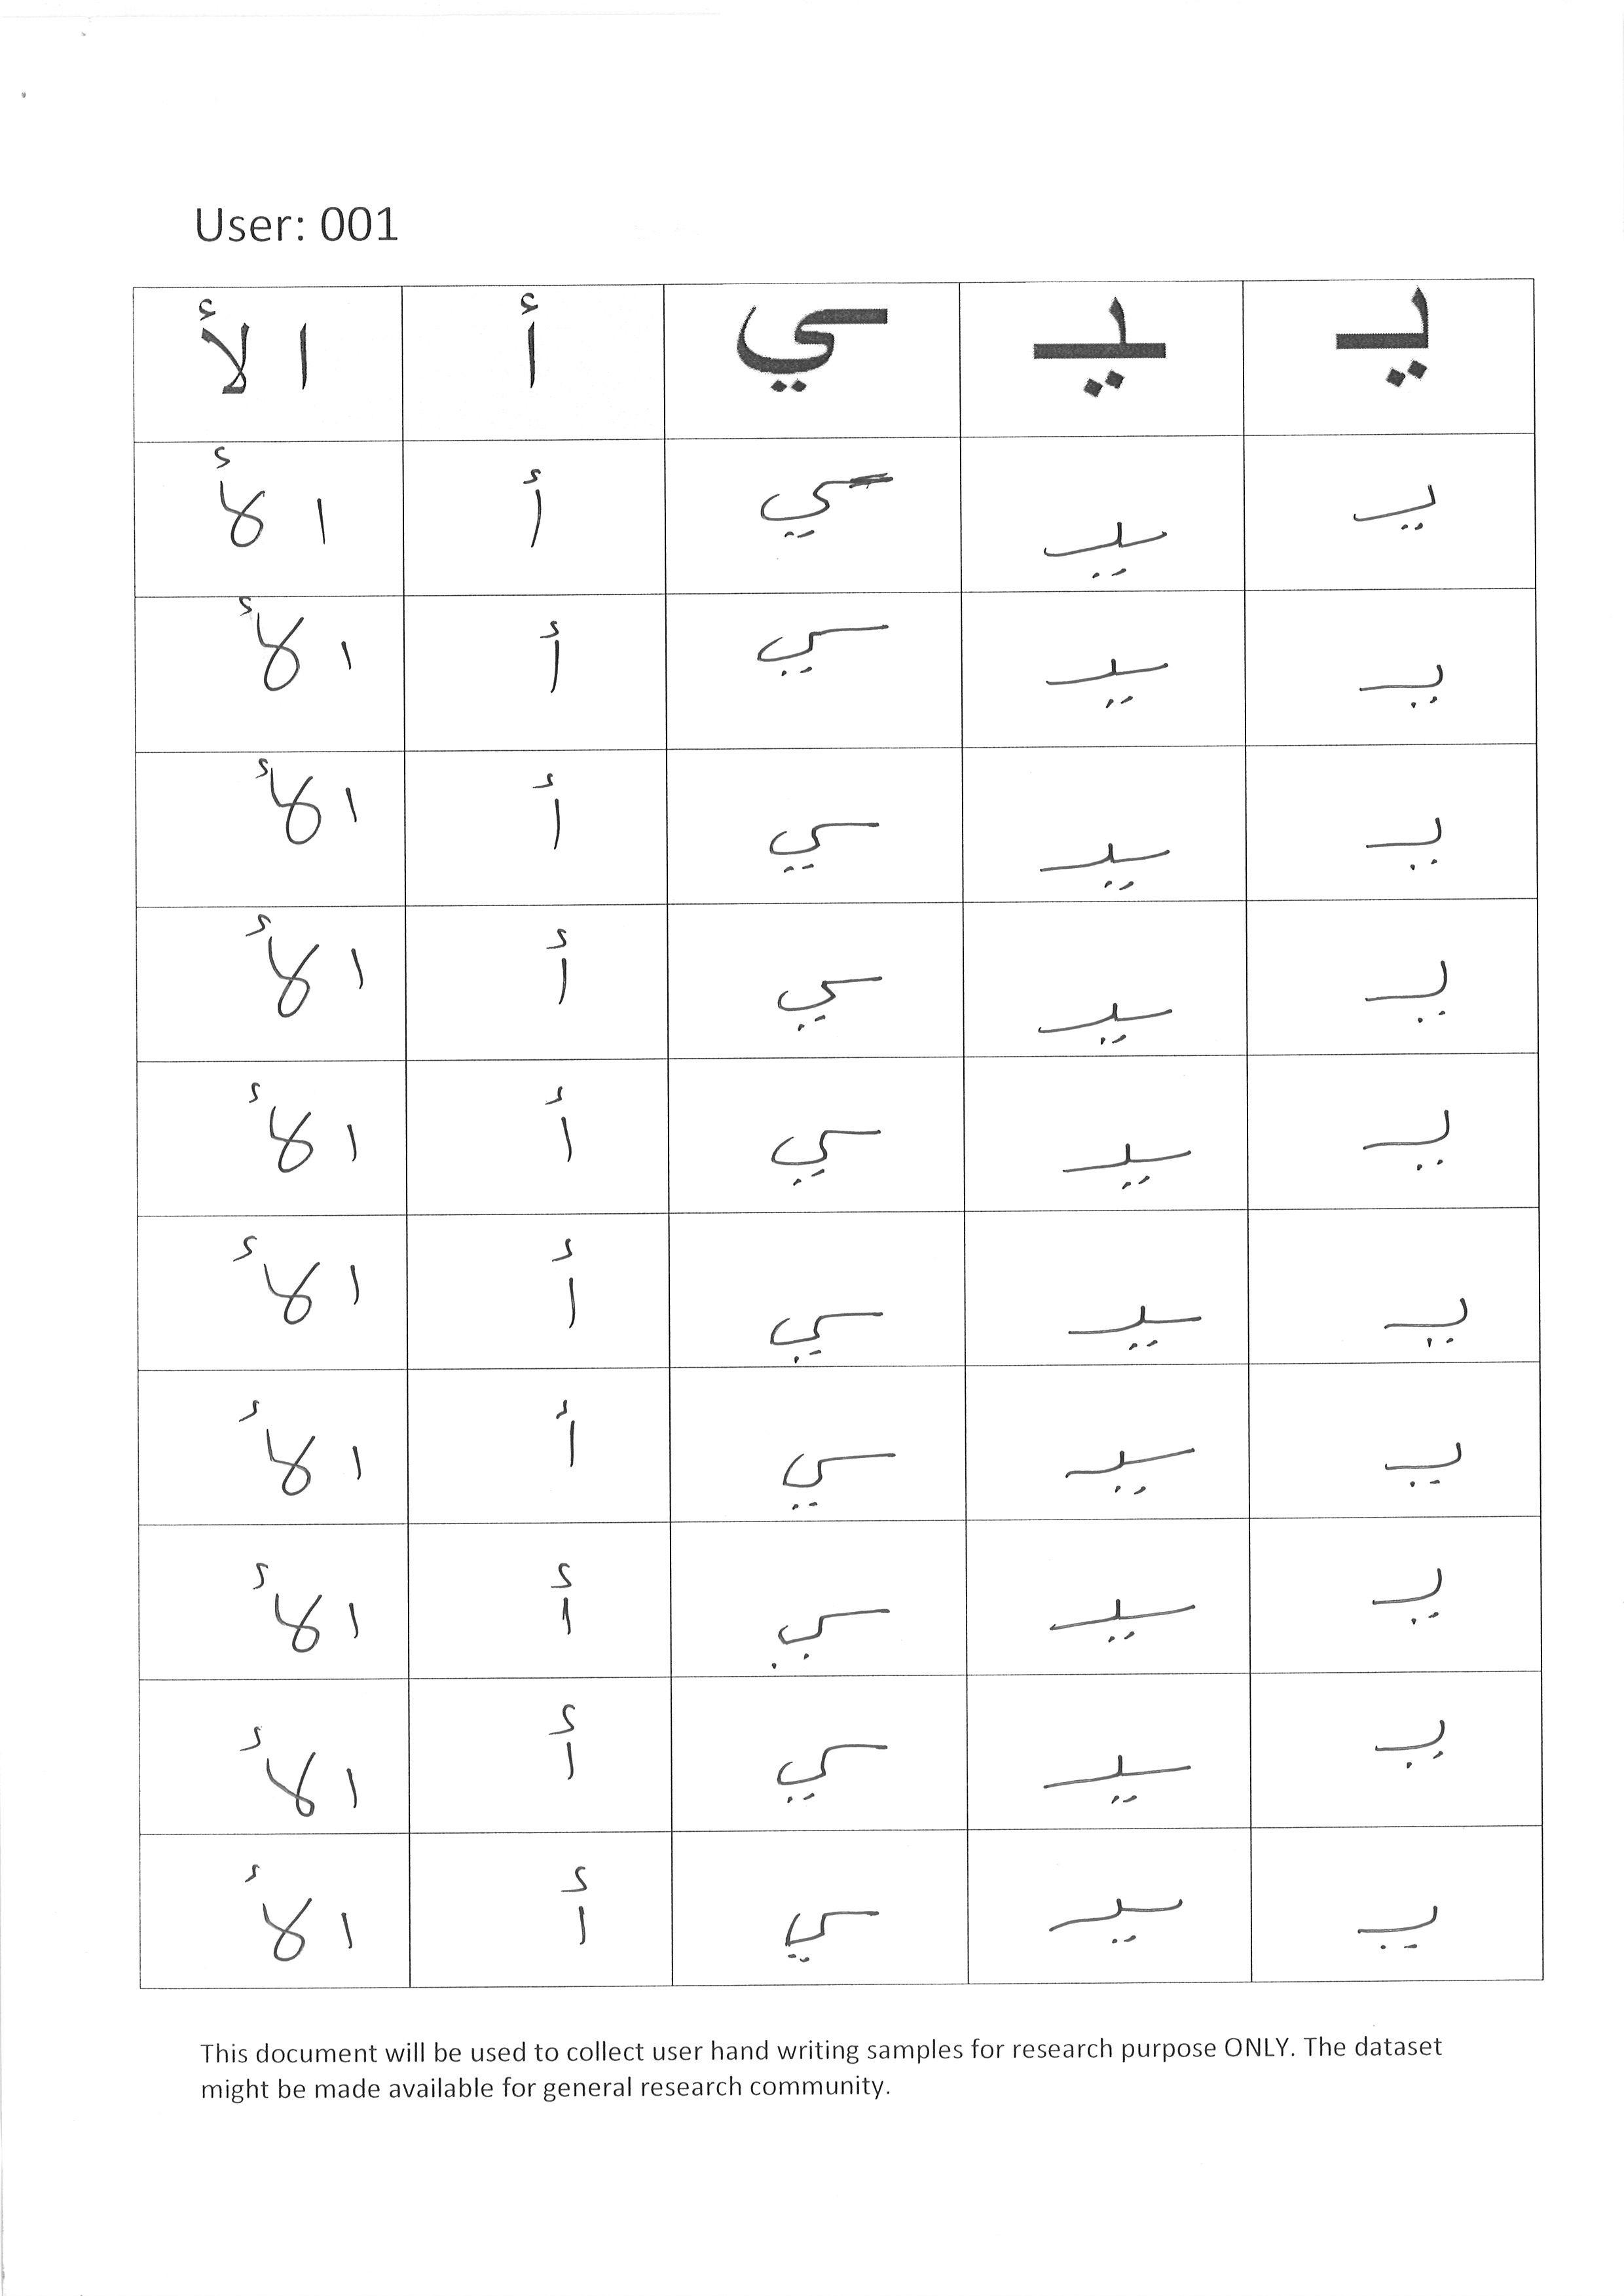 User: 001
يـ ـيـ ـي أ الأ
يـ ـيـ ـي أ الأ
يـ ـيـ ـي أ الأ
يـ ـيـ ـي أ الأ
يـ ـيـ ـي أ الأ
يـ ـيـ ـي أ الأ
يـ ـيـ ـي أ الأ
يـ ـيـ ـي أ الأ
يـ ـيـ ـي أ الأ
يـ ـيـ ـي أ الأ
يـ ـيـ ـي أ الأ
This document will be used to collect user hand writing samples for research purpose ONLY. The dataset
might be made available for general research community.